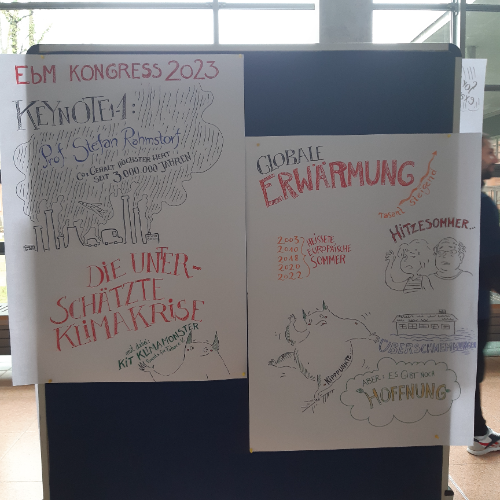 EbM KONGRESS 2023
KEYNOTE 1:
Prof. Stefan Rahmstorf
CO2 GEHALT HÖCHSTER WERT
SEIT 3.000.000 JAHREN!
DIE UNTER-
SCHÄTZTE
KLIMAKRISE
KIT KLIMAMONSTER
GLOBALE
ERWÄRMUNG
2003
2010
2018
2020
2022
EUROPÄISCHE
SOMMER
HITZESOMMER...
KIPPPUNKTE
ÜBERSCHWEMMUNGEN
ABER: ES GIBT NOCH
HOFFNUNG